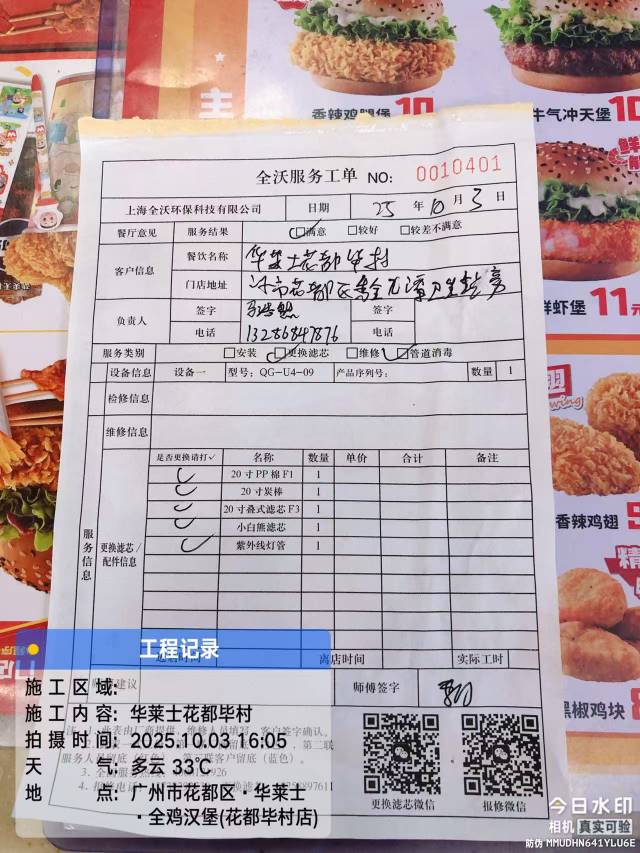 香辣鸡腿堡 10
牛气冲天堡 10
全沃服务工单 NO: 0010401
上海全沃环保科技有限公司 日期 25 年 10 月 3 日
餐厅意见 服务结果 满意 较好 较差不满意
客户信息 餐饮名称 华莱士花都毕村
门店地址
负责人 签字 签字
电话 13286847876 电话
服务类别 安装 更换滤芯 维修 管道消毒
设备信息 设备一 型号: QG-U4-09 产品序列号: 数量 1
检修信息
维修信息
是否更换请打✓ 名称 数量 单价 合计 备注
✓ 20寸PP棉F1 1
✓ 20寸炭棒 1
✓ 20寸叠式滤芯F3 1
✓ 小白熊滤芯 1
✓ 紫外线灯管 1
服务信息
更换滤芯/配件信息
离店时间 实际工时
建议 师傅签字
更换滤芯微信 报修微信
鲜虾堡 11元
香辣鸡翅
黑椒鸡块
工程记录
施工区域:
施工内容: 华莱士花都毕村
拍摄时间: 2025.10.03 16:05
天气: 多云 33℃
地点: 广州市花都区·华莱士·全鸡汉堡(花都毕村店)
今日水印
相机 真实可验
防伪 MMUDHN641YLU6E